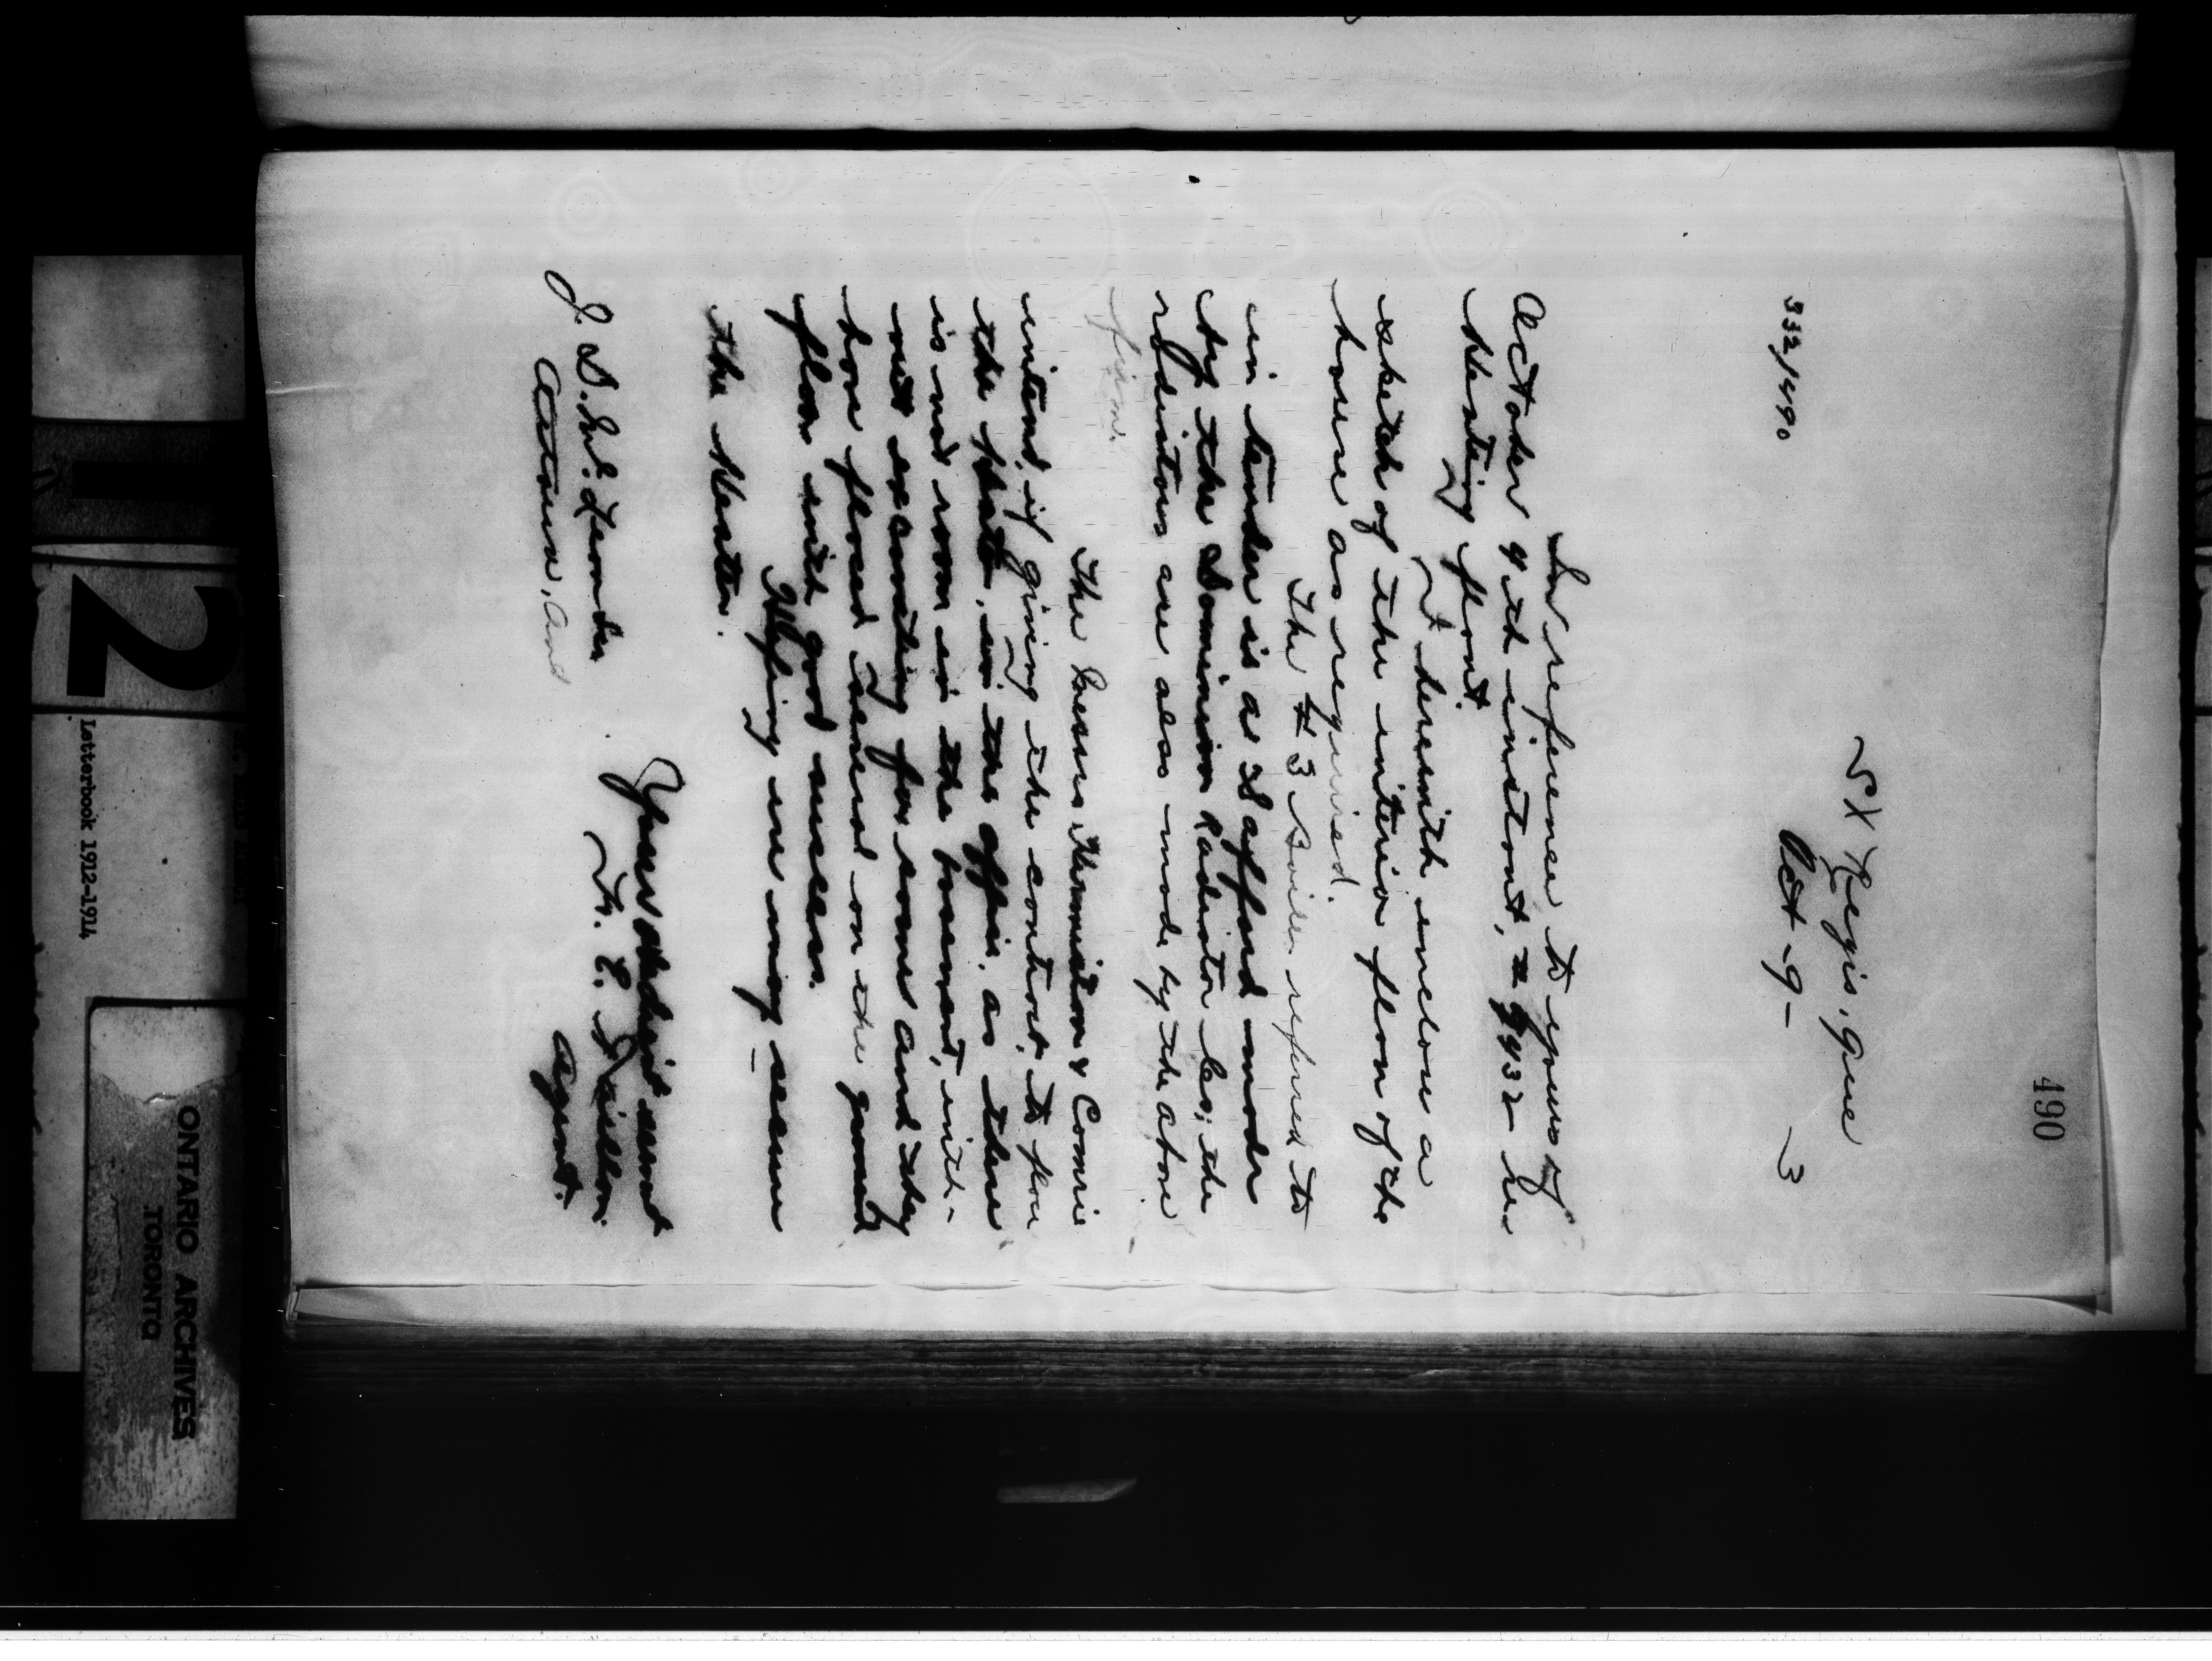 490
St Regis, Que
332/1490
Oct - 9 - 3
In reference to yours of
October 4th instant, re
Heating plant.
I herewith enclose a
sketch of the interior plan of the
house as required.
The # 3 Boiler referred to
in tender is a Safford made
by the Dominion Radiator Co; the
radiators are also made by the above
firm.
The Messrs & Comrie
intend, if giving the contract, to place
the plant, in the office, as there
is not room in the basement, with-
out excavating for same and they
have placed several on the ground
floor with good success.
Hoping we may secure
the Heater.
Yours Obedient servant
F. E. Taillon
Agent.
J. D. McLean
Ottawa, Ont
2
Letterbook 1912-1914
ONTARIO ARCHIVES
TORONTO